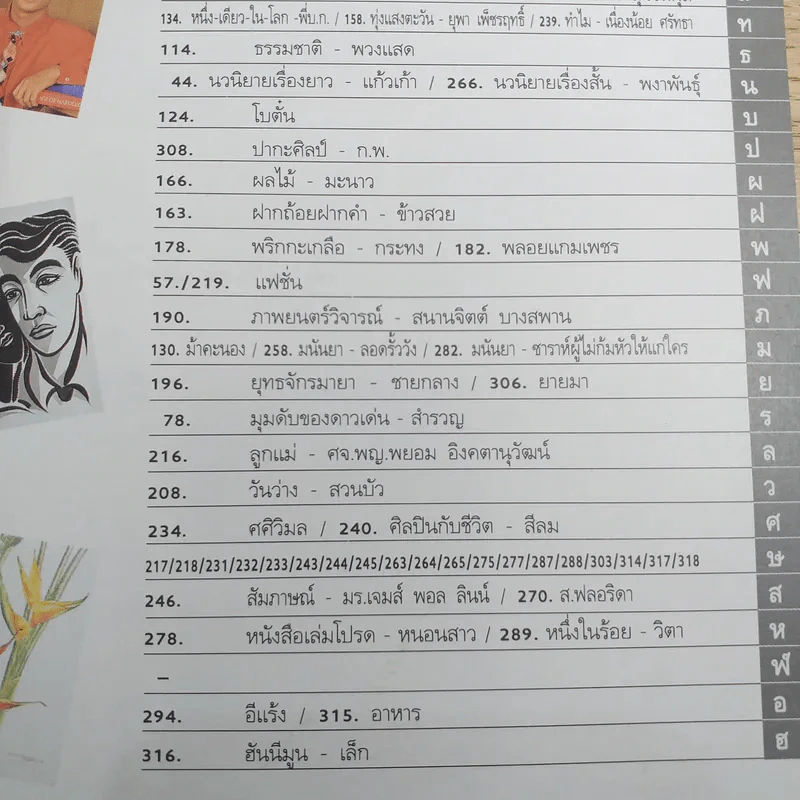 134. หนึ่ง-เดียว-ใน-โลก -พี่บ.ก. / 158. ทุ่งแสงตะวัน - ยุพา เพ็ชรฤทธิ์ / 239. ทำไม - เนื่องน้อย ศรัทธา ท
114. ธรรมชาติ - พวงแสด ธ
44. นวนิยายเรื่องยาว - แก้วเก้า / 266. นวนิยายเรื่องสั้น - พงาพันธุ์ น
124. โบตั๋น บ
308. ปากะศิลป์ - ก.พ. ป
166. ผลไม้ - มะนาว ผ
163. ฝากถ้อยฝากคำ - ข้าวสวย ฝ
178. พริกกะเกลือ - กระทง / 182. พลอยแกมเพชร พ
57./219. แฟชั่น ฟ
190. ภาพยนตร์วิจารณ์ - สนานจิตต์ บางสพาน ภ
130. ม้าคะนอง / 258. มนันยา - ลอดรั้ววัง / 282. มนันยา - ซาราห์ผู้ไม่ก้มหัวให้แก่ใคร ม
196. ยุทธจักรมายา - ชายกลาง / 306. ยายมา ย
78. มุมดับของดาวเด่น - สำรวญ ร
216. ลูกแม่ - ศจ.พญ.พยอม อิงคตานุวัฒน์ ล
208. วันว่าง - สวนบัว ว
234. ศศิวิมล / 240. ศิลปินกับชีวิต - สีลม ศ
217/218/231/232/233/243/244/245/263/264/265/275/277/287/288/303/314/317/318 ษ
246. สัมภาษณ์ - มร.เจมส์ พอล ลินน์ / 270. ส.ฟลอริดา ส
278. หนังสือเล่มโปรด - หนอนสาว / 289. หนึ่งในร้อย - วิตา ห
– ฬ
294. อีแร้ง / 315. อาหาร อ
316. ฮันนีมูน - เล็ก ฮ